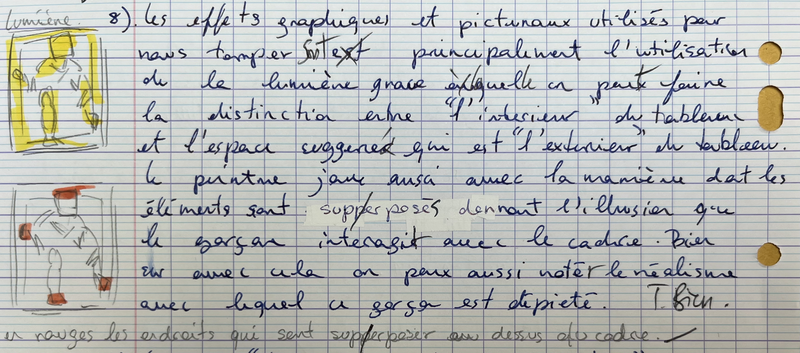 lumière.
8). les effets graphiques et picturaux utilisés par
nous tromper sont principalement l'utilisation
de la lumière grace à laquelle on peut faire
la distinction entre "l'interieur" du tableau
et l'espace suggeré qui est "l'exterieur" du tableau.
le peintre joue aussi avec la manière dont les
éléments sont supperposés donnant l'illusion que
le garçon interagit avec le cadre. Bien
sur avec cela on peux aussi notér le réalisme
avec lequel ce garçon est depieté. T. Bien.
en rouges les endroits qui sont supperposer au dessus du cadre.